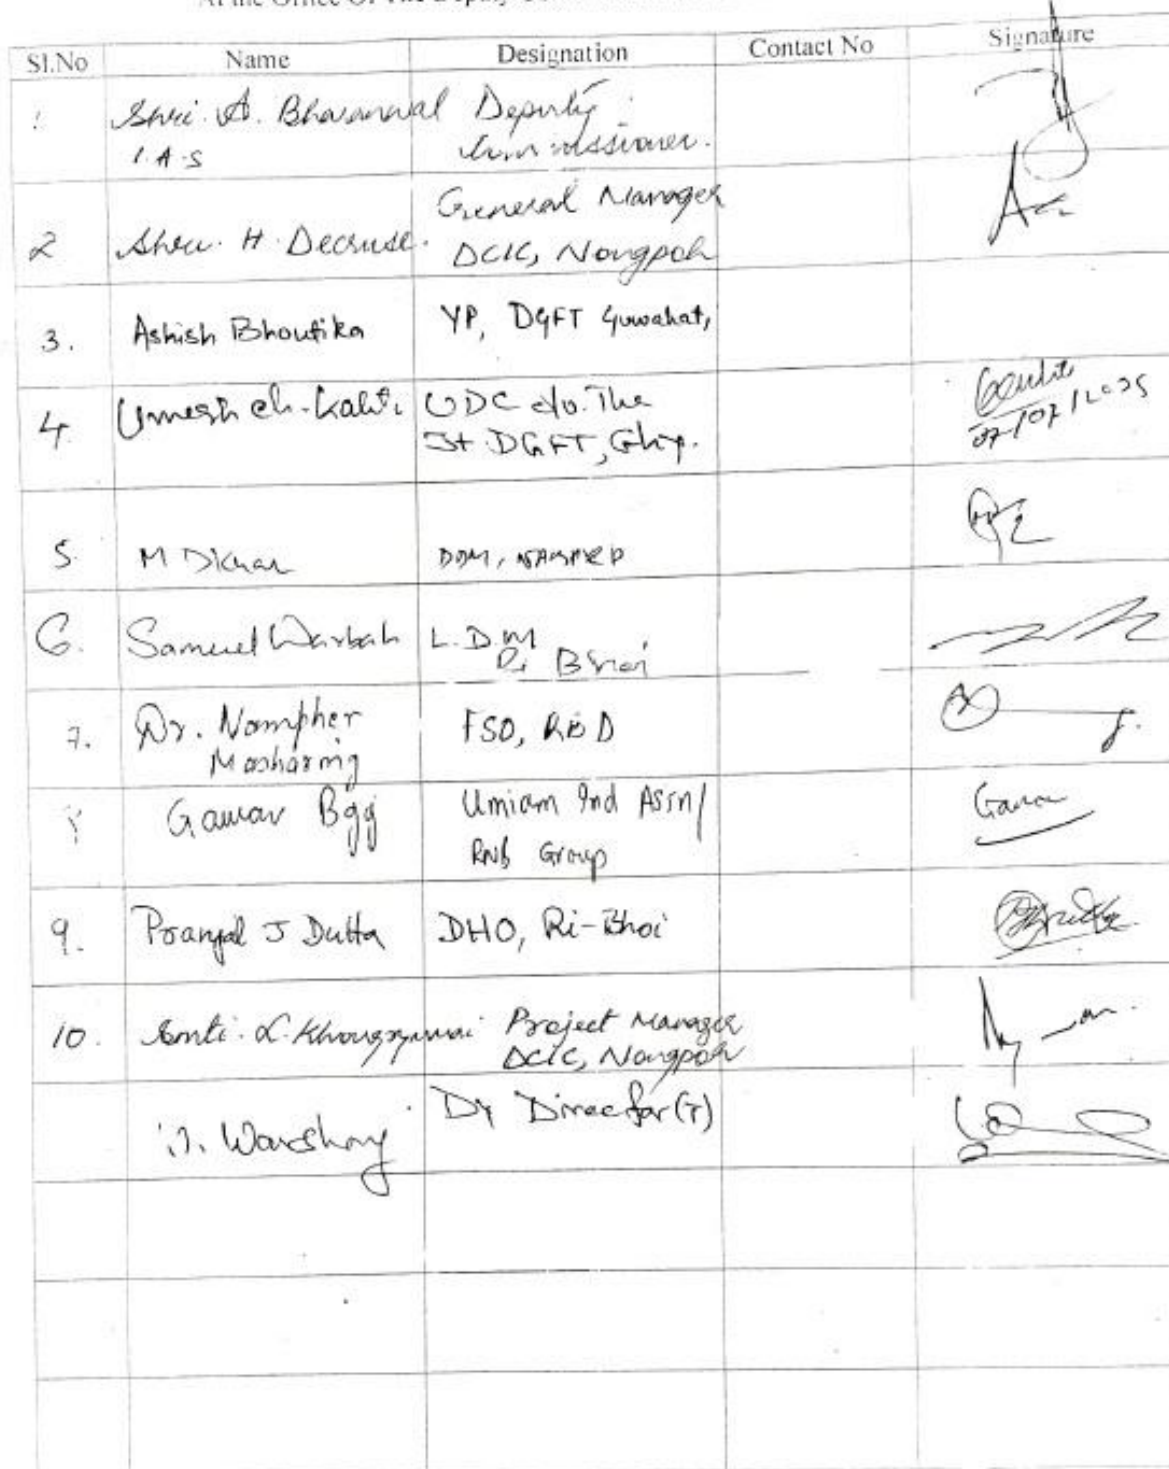 At the Office Of The Deputy
Sl.No Name Designation Contact No Signature
1 Shri. A. Bharanwal Deputy
I.A.S Commissioner.
General Manager
2 Shri. H. Decruse. DCIC, Nongpoh
3. Ashish Bhoutika YP, DGFT Guwahati
4. Umesh ch. Kalita UDC o/o. The
Jt. DGFT, Ghy.
07/07/2025
5. M Dkhar DDM, NABARD
6. Samuel Warbah L.D.M
Ri Bhoi
7. Dr. Nampher FSO, RBD
Masharing
8 Gaurav Umiam Ind Assn/
RNB Group
9. Pranjal J Dutta DHO, Ri-Bhoi
10. Smti. L. Project Manager
DCIC, Nongpoh
Warshong Dy Director (T)